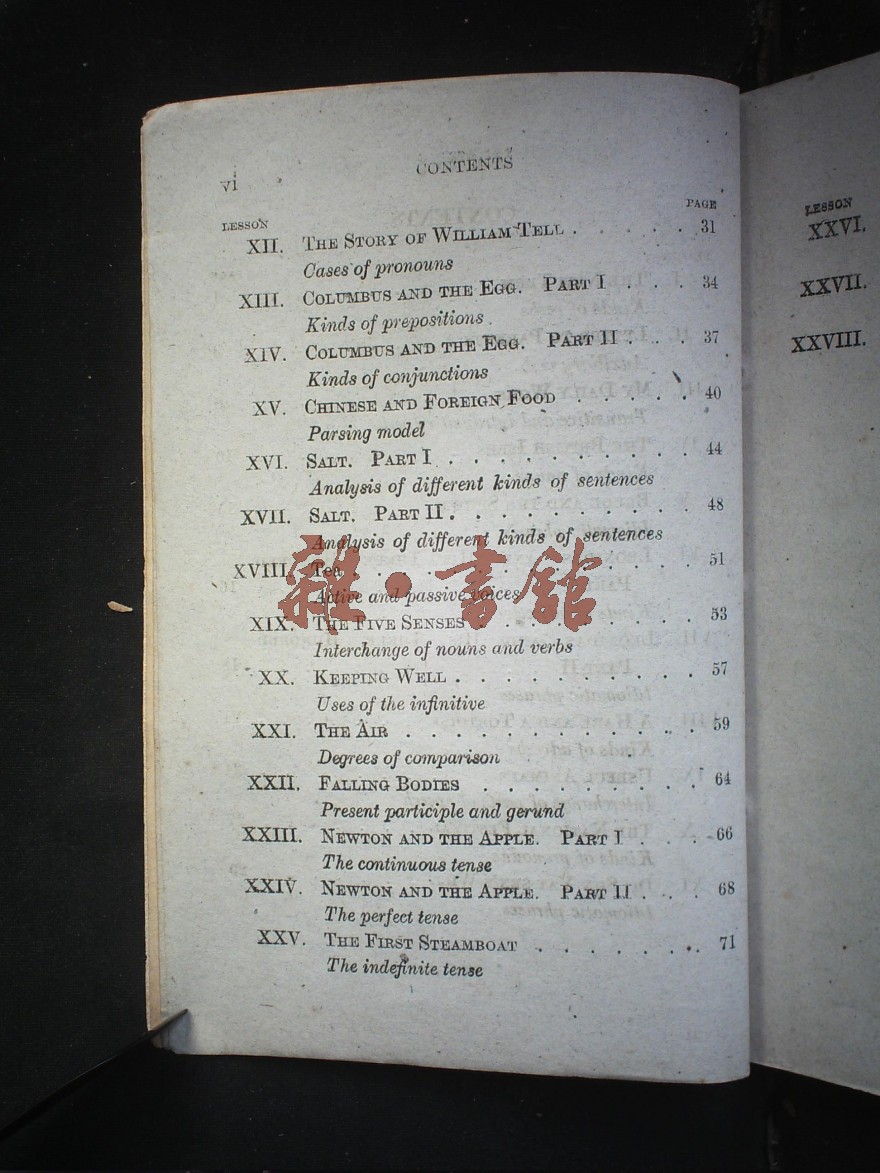 vi
CONTENTS
LESSON PAGE
XII. THE STORY OF WILLIAM TELL . . . . . 31
Cases of pronouns
XIII. COLUMBUS AND THE EGG. PART I . . . 34
Kinds of prepositions
XIV. COLUMBUS AND THE EGG. PART II . . . 37
Kinds of conjunctions
XV. CHINESE AND FOREIGN FOOD . . . . 40
Parsing model
XVI. SALT. PART I . . . . . . . . . . 44
Analysis of different kinds of sentences
XVII. SALT. PART II . . . . . . . . . . 48
Analysis of different kinds of sentences
XVIII. Tea . . . . . . . . . . . . 51
Active and passive voices
XIX. THE FIVE SENSES . . . . . . . . . 53
Interchange of nouns and verbs
XX. KEEPING WELL . . . . . . . . . . 57
Uses of the infinitive
XXI. THE AIR . . . . . . . . . . . . 59
Degrees of comparison
XXII. FALLING BODIES . . . . . . . . . 64
Present participle and gerund
XXIII. NEWTON AND THE APPLE. PART I . . . 66
The continuous tense
XXIV. NEWTON AND THE APPLE. PART II . . . 68
The perfect tense
XXV. THE FIRST STEAMBOAT . . . . . . . 71
The indefinite tense
雜·書館
LESSON
XXVI.
XXVII.
XXVIII.